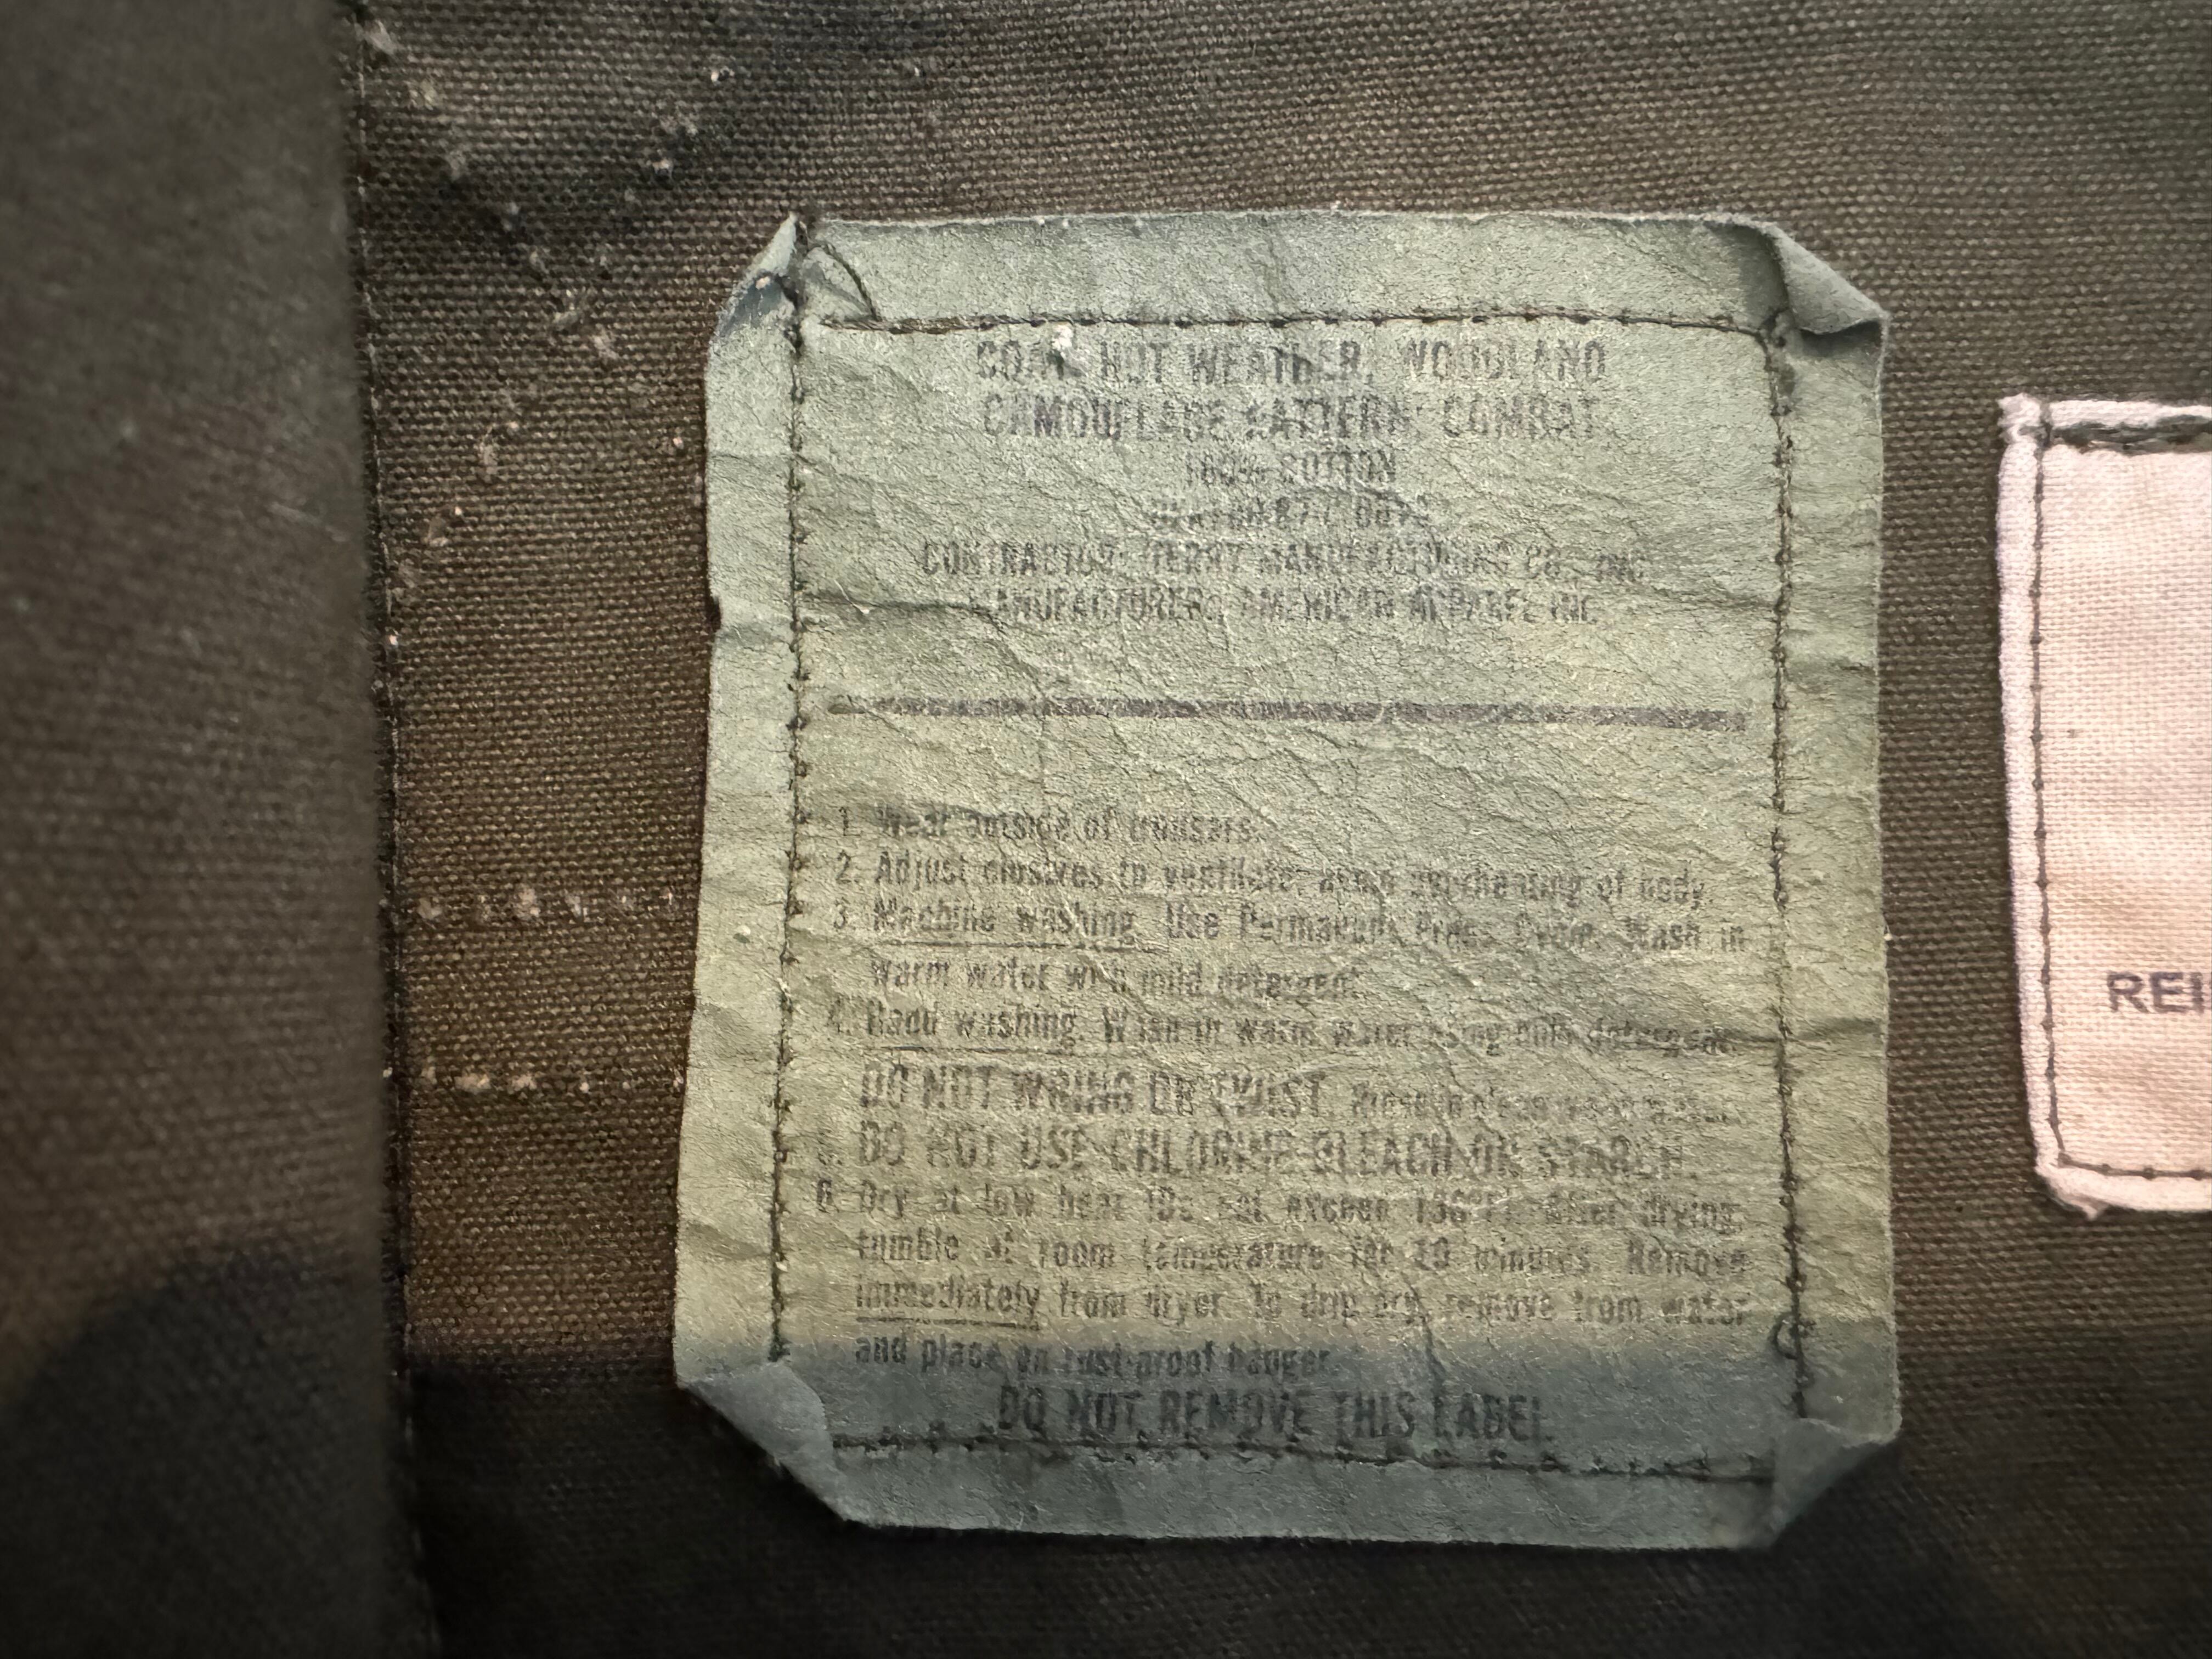 COAT, HOT WEATHER, WOODLAND
CAMOUFLAGE PATTERN, COMBAT
100% COTTON
CONTRACTOR: TERRY MANUFACTURING CO., INC.
MANUFACTURER: AMERICAN APPAREL INC.
1. Wear outside of trousers.
2. Adjust closures to ventilate; avoid overheating of body.
3. Machine washing. Use Permanent Press Cycle. Wash in
warm water with mild detergent.
4. Hand washing. Wash in warm water using mild detergent.
DO NOT WRING OR TWIST. Rinse in clean warm water.
5. DO NOT USE CHLORINE BLEACH OR STARCH.
6. Dry at low heat (Do not exceed 130°F). After drying,
tumble at room temperature for 10 minutes. Remove
immediately from dryer. To drip dry, remove from water
and place on rust-proof hanger.
DO NOT REMOVE THIS LABEL
REI